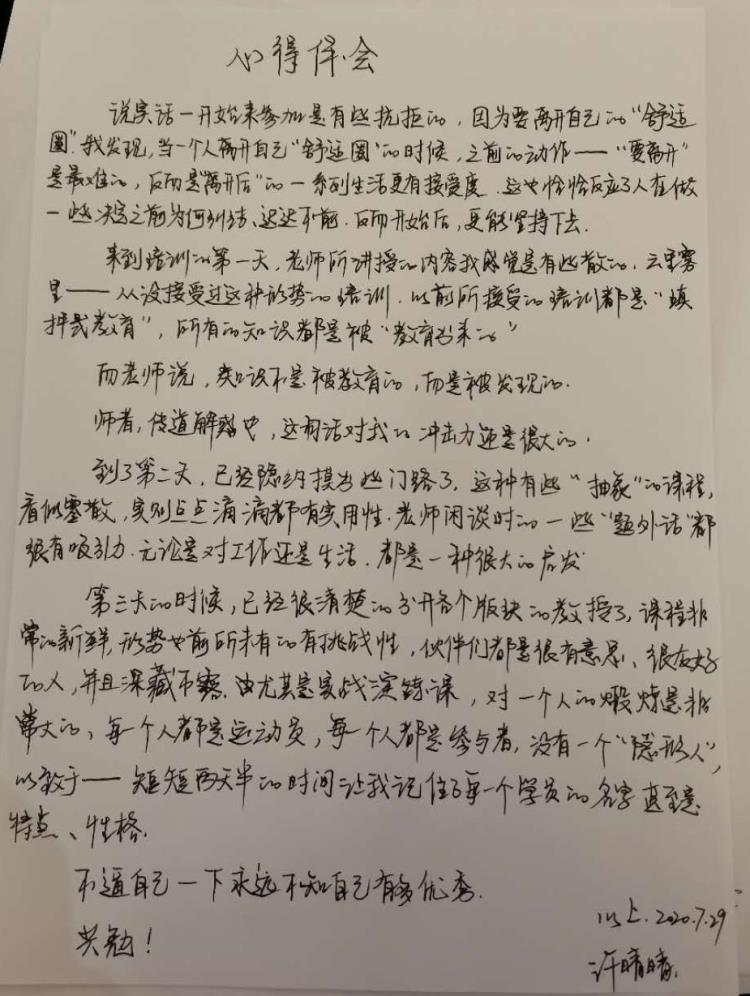 心得体会
说实话一开始来参加是有些抗拒的，因为要离开自己的“舒适
圈”.我发现,当一个人离开自己“舒适圈”的时候，之前的动作——“要离开”
是最难的，反而是“离开后”的一系列生活更有接受度.这也恰恰反应了人在做
一些决定之前为何纠结、迟迟不前.反而开始后，更能坚持下去.
来到培训的第一天，老师所讲授的内容我感觉是有些散的.云里雾
里——从没接受过这种形势的培训.以前所接受的培训都是“填
押式教育”，所有的知识都是被“教育出来的”
而老师说，知识不是被教育的，而是被发现的.
师者,传道解惑也，这句话对我的冲击力还是很大的.
到了第二天，已经隐约摸出些门路了.这种有些“抽象”的课程,
看似零散，实则点点滴滴都有实用性.老师闲谈时的一些“题外话”都
很有吸引力.无论是对工作还是生活.都是一种很大的启发
第三天的时候，已经很清楚的分开各个版块的教授了，课程非
常的新鲜,形势也前所未有的有挑战性，伙伴们都是很有意思、很友好
的人，并且深藏不露.尤其是实战演练课，对一个人的煅炼是非
常大的、每个人都是运动员，每个人都是参与者，没有一个“隐形人”,
以致于——短短两天半的时间让我记住了每一个学员的名字甚至是
特点、性格.
不逼自己一下永远不知自己有多优秀.
共勉！
以上.2020.7.29
许晴晴.